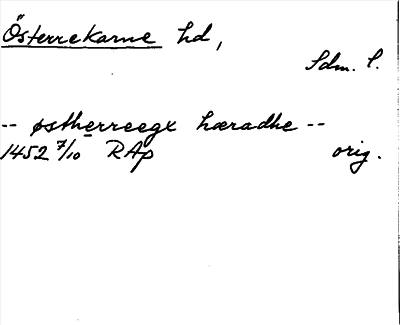 Österrekarne hd,
Sdm. l.
-- østherreegx hæradhe --
1452 7/10 RAp orig.